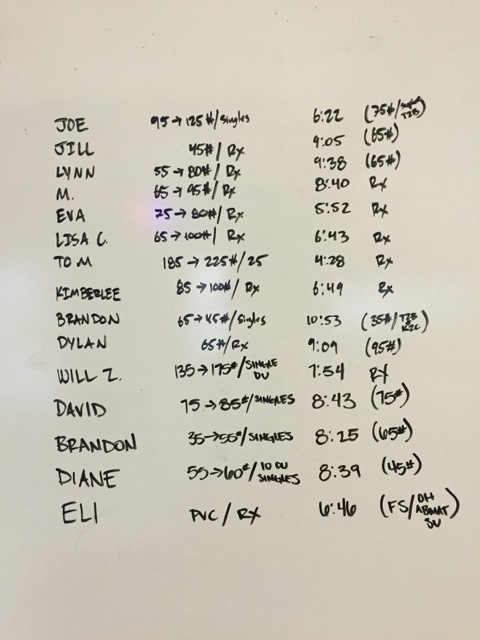 JOE 95→125#/Singles 6:22 (75#/
JILL 45#/Rx 9:05 (65#)
LYNN 55→80#/Rx 9:38 (65#)
M. 65→95#/Rx 8:40 Rx
EVA 75→80#/Rx 5:52 Rx
LISA C. 65→100#/Rx 6:43 Rx
TOM 185→225#/25 4:28 Rx
KIMBERLEE 85→100#/Rx 6:49 Rx
BRANDON 65→45#/Singles 10:53 (35#/T2B K2C)
DYLAN 65#/Rx 9:09 (95#)
WILL Z. 135→175#/SINGLE DU 7:54 RX
DAVID 75→85#/SINGLES 8:43 (75#)
BRANDON 35→55#/SINGLES 8:25 (65#)
DIANE 55→60#/10 DU SINGLES 8:39 (45#)
ELI PVC/RX 6:46 (FS/OH ABMAT SU)